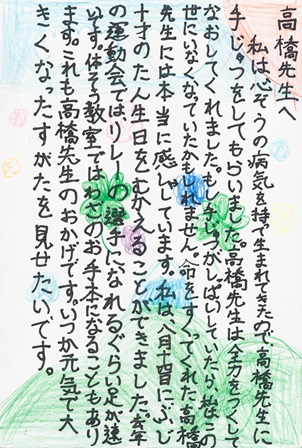 高橋先生へ
私は心ぞうの病気を持て生まれてきたので高橋先生に
手じゅつをしてもらいました。高橋先生は全力をつくして
なおしてくれました。もし手じゅつがしぱいしていたら、私はこの
世にいなくなっていたかもしれません。命をすくってくれた高橋
先生には本当に感しゃしています。私は八月十四日にぶじ
十才のたん生日をむかえることができました。去年
の運動会では、リレーの選手になれるぐらい足が速
いです。体そう教室ではわざのお手本になることもあり
ます。これも高橋先生のおかげです。いつか元気で大
きくなったすがたを見せたいです。